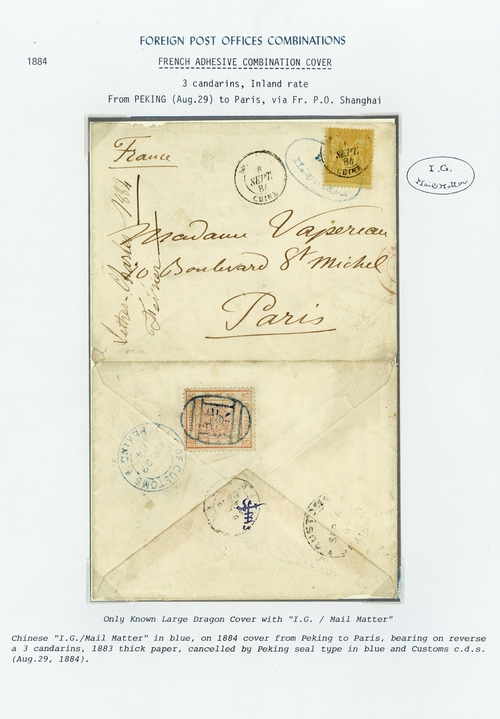 FOREIGN POST OFFICES COMBINATIONS
1884
FRENCH ADHESIVE COMBINATION COVER
3 candarins, Inland rate
From PEKING (Aug.29) to Paris, via Fr. P.O. Shanghai
France
SEPT.
84
CHINE
SEPT.
84
CHINE
I.G.
Mail Matter
1884
Madame Vapereau
10 Boulevard St Michel
Paris
CUSTOMS
PEKING
Only Known Large Dragon Cover with "I.G. / Mail Matter"
Chinese "I.G./Mail Matter" in blue, on 1884 cover from Peking to Paris, bearing on reverse
a 3 candarins, 1883 thick paper, cancelled by Peking seal type in blue and Customs c.d.s.
(Aug.29, 1884).